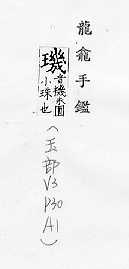 龍龕手鑑
璣音機水圓
小珠也
(玉部
V3
P30
A1)